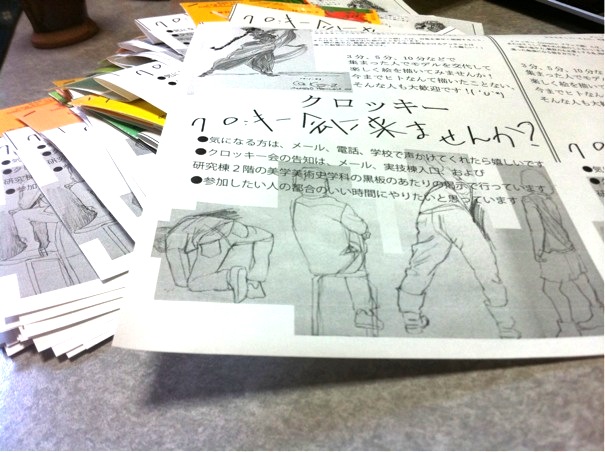 クロッキー会に
3分、5分、10分などで
集まった人でモデルを交代して
楽しく絵を描いてみませんか!
今までヒトなんて描いたことない、
そんな人も大歓迎です!(^o^)
クロッキー
クロッキー会に来ませんか?
●気になる方は、メール、電話、学校で声かけてくれたら嬉しいです
●クロッキー会の告知は、メール、実技棟入口、および
研究棟2階の美学美術史学科の黒板のあたりの掲示で行っています
●参加したい人の都合のいい時間にやりたいと思っています
3分、5分、
集まった人で
楽しく絵を描
今までヒトなん
そんな人も大
クロ
●気に
●クロ
研究棟2
●参加